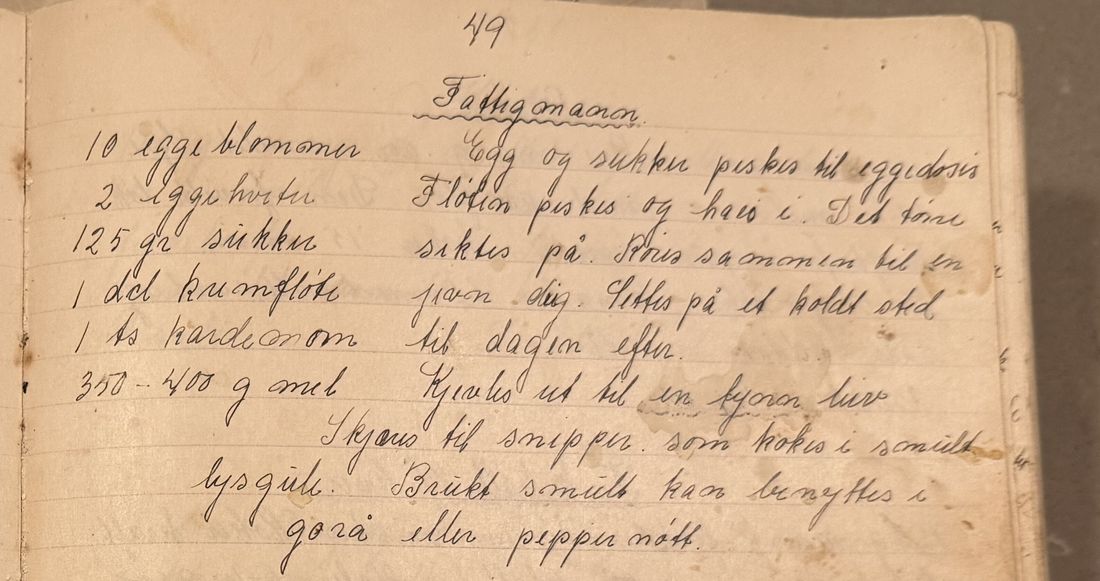 49
Fattigmann.
10 eggeblommer Egg og sukker piskes til eggedosis
2 eggehviter Fløten piskes og haes i. Det tørre
125 gr sukker siktes på. Røres sammen til en
1 del kremfløte jevn deig. Settes på et koldt sted
1 ts kardemom til dagen efter.
350 - 400 g mel Kjevles ut til en tynn leiv
Skjæres til snipper. som kokes i smult
lysgule. Brukt smult kan benyttes i
gorå eller peppernøtt.